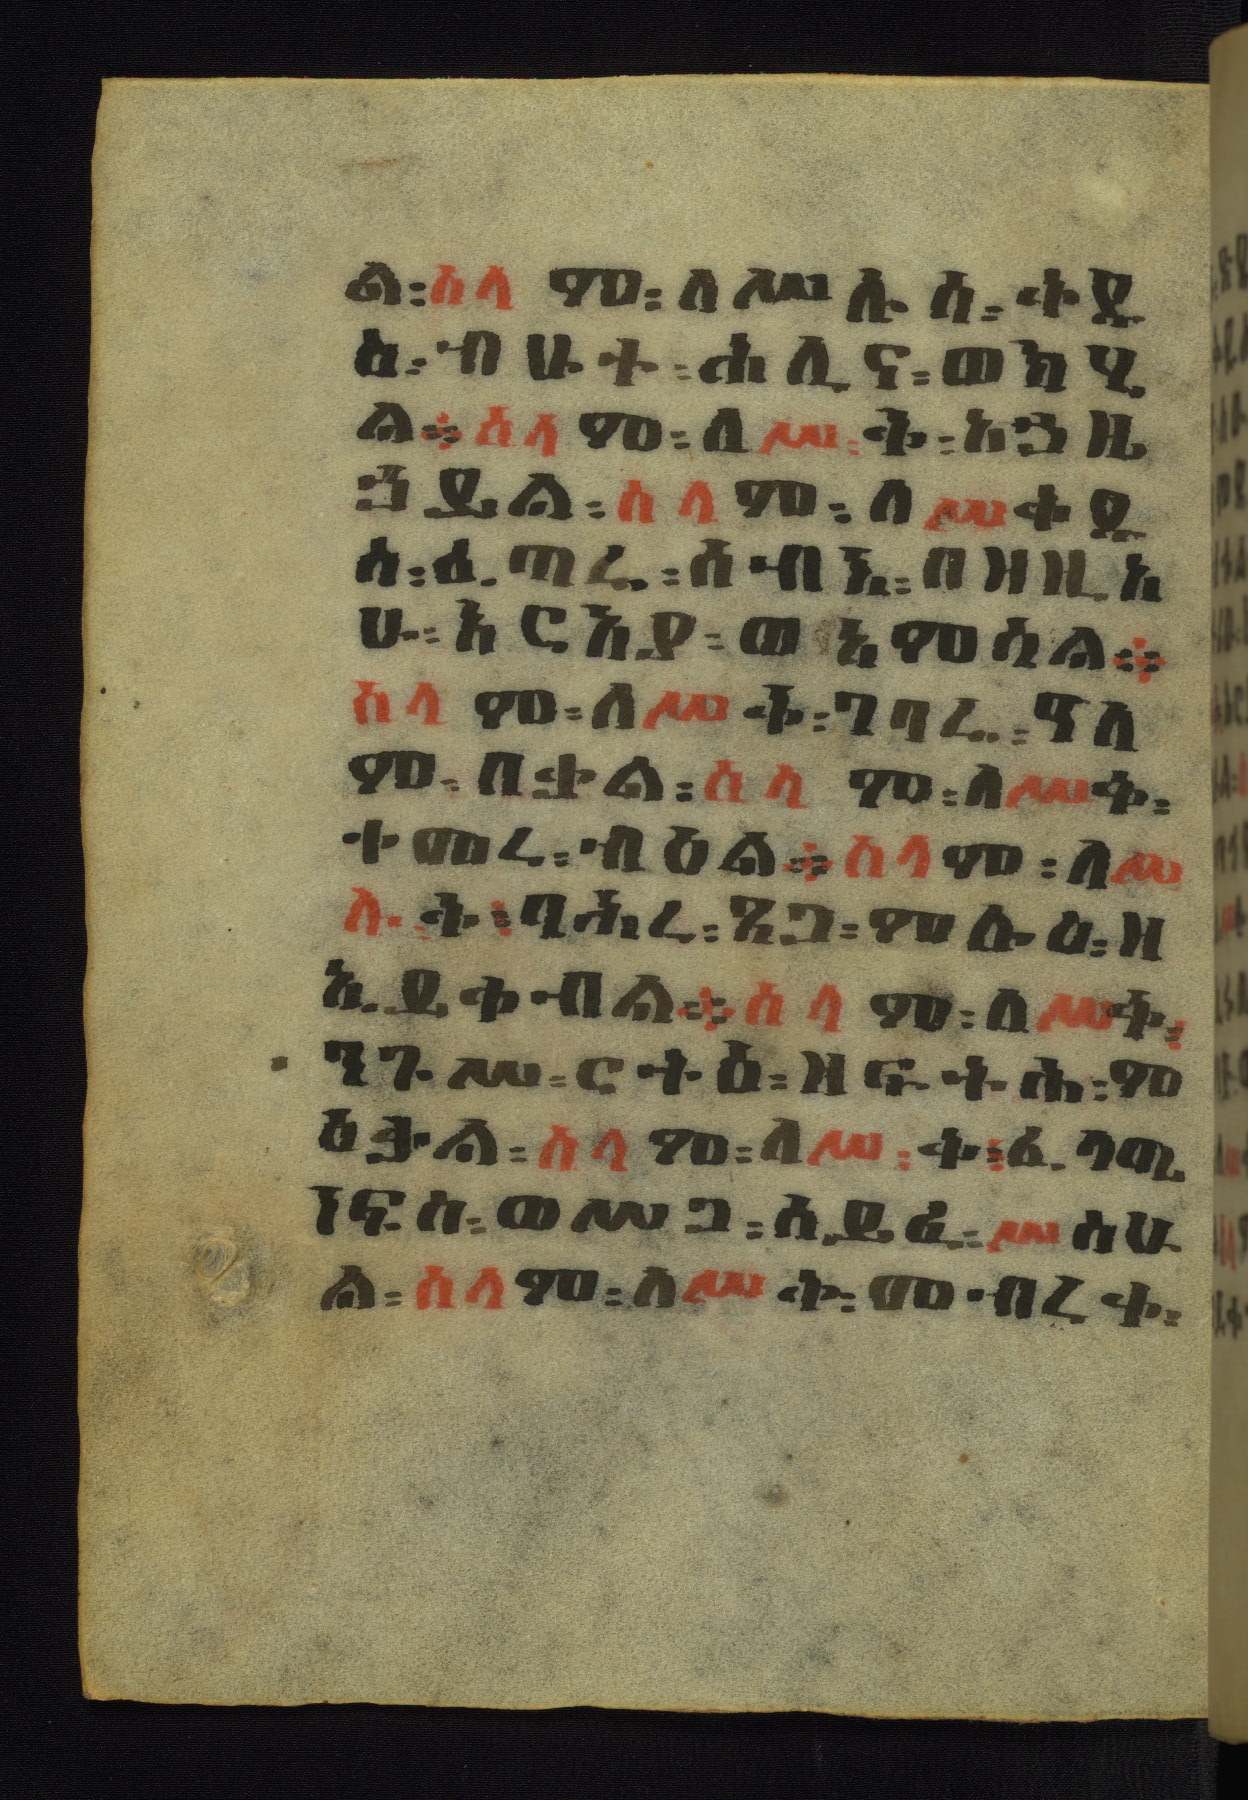 ል፡ሰላ ም፡ለሥሉስ፡ቅዱ
ስ፡ብሁተ፡ሐሊና፡ወክሂ
ል፨ሰላም፡ለሥ፡ቅ፡አኃዜ
ኃይል፡ሰላም፡ለሥቅዱ
ስ፡ፈጣሪ፡ሰብእ፡በዘዚአ
ሁ፡አርአያ፡ወአምሳል፨
ሰላ ም፡ለሥ ቅ፡ገባሪ፡ዓለ
ም፡በቃል፡ሰላ ም፡ለሥቅ፡
ተመሪ፡ብዕል፨ሰላም፡ለሥ
ሉ፡ቅ፡ባሕረ፡ጸጋ፡ምሉዕ፡ዘ
ኢይቀብል፨ሰላ ም፡ለሥቅ፡
ንጉሠ፡ርትዕ፡ዘፍትሑ፡ም
ዕቃል፡ሰላም፡ለሥ፡ቅ፡ፈጣሚ
ነፍስ፡ወሥጋ፡ሰይፈ፡ሥስሁ
ል፡ሰላም፡ለሥ ቅ፡መብረቀ፡